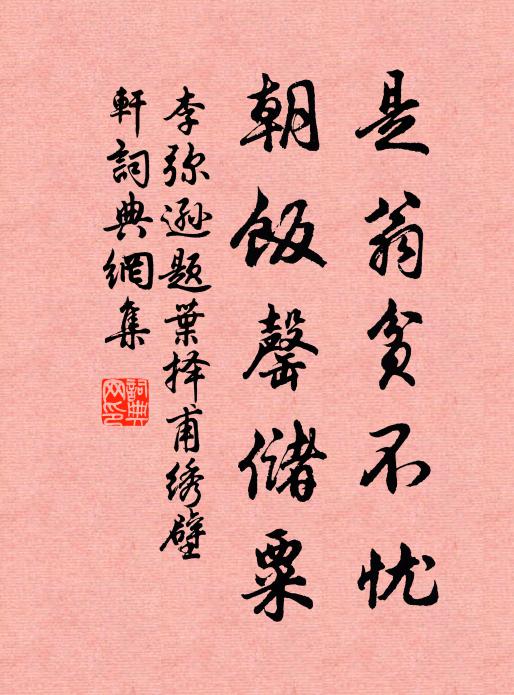 是翁贫不忧
朝饭罄储粟
李弥逊题葉择甫绣壁
軒詞典網集
詞典網印